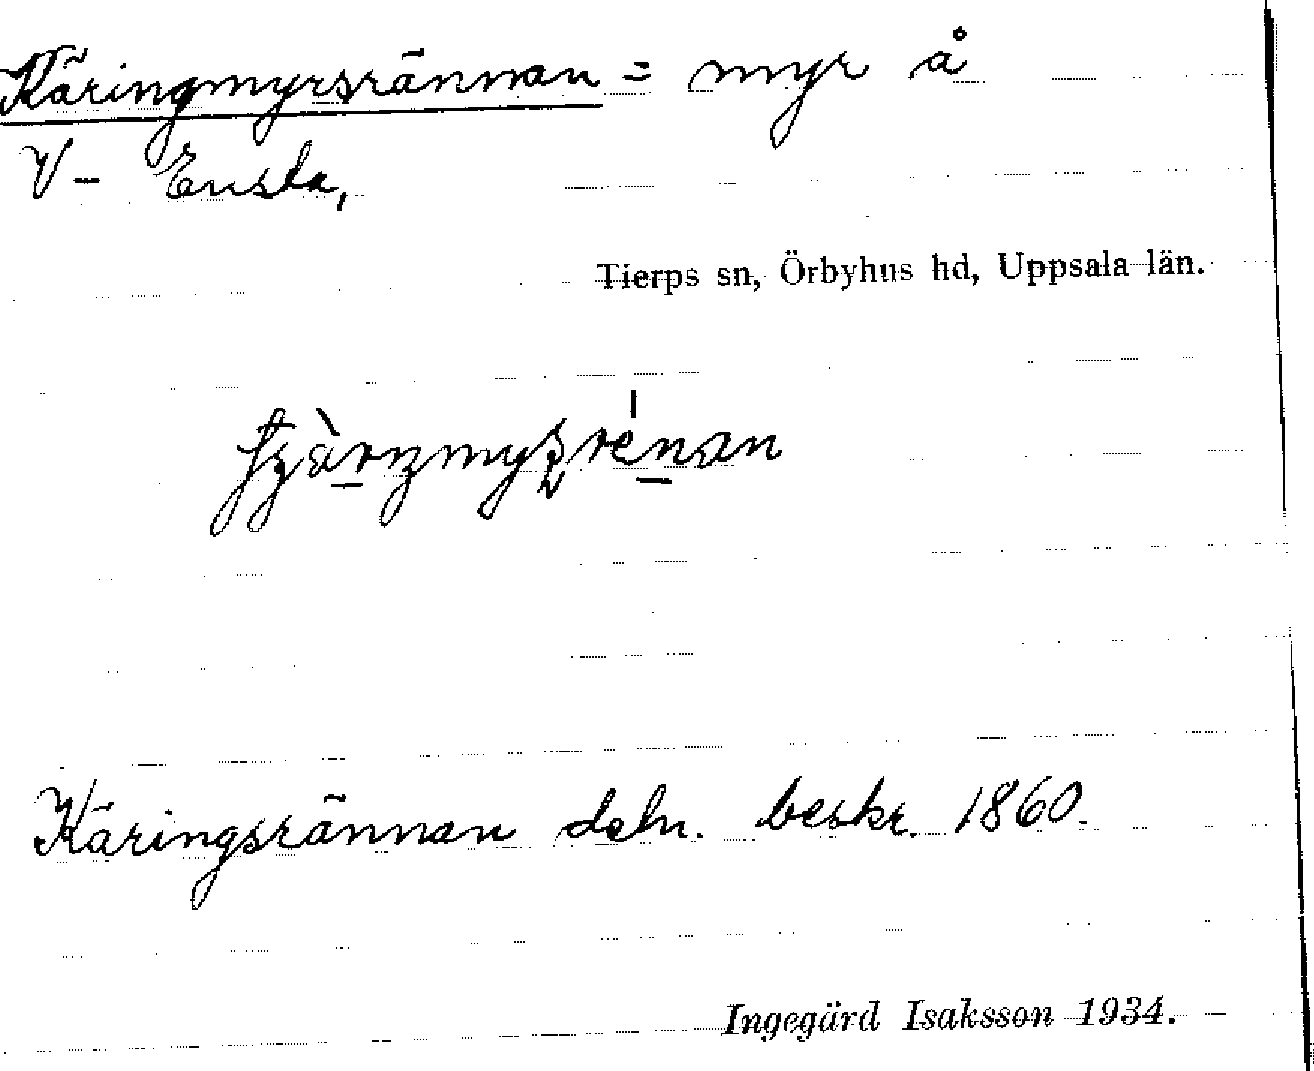 Käringmyrsrännan = myr å
V - Ensta,
Tierps sn, Örbyhus hd, Uppsala län.
Käringsrännan deln. beskr. 1860.
Ingegärd Isaksson 1934.